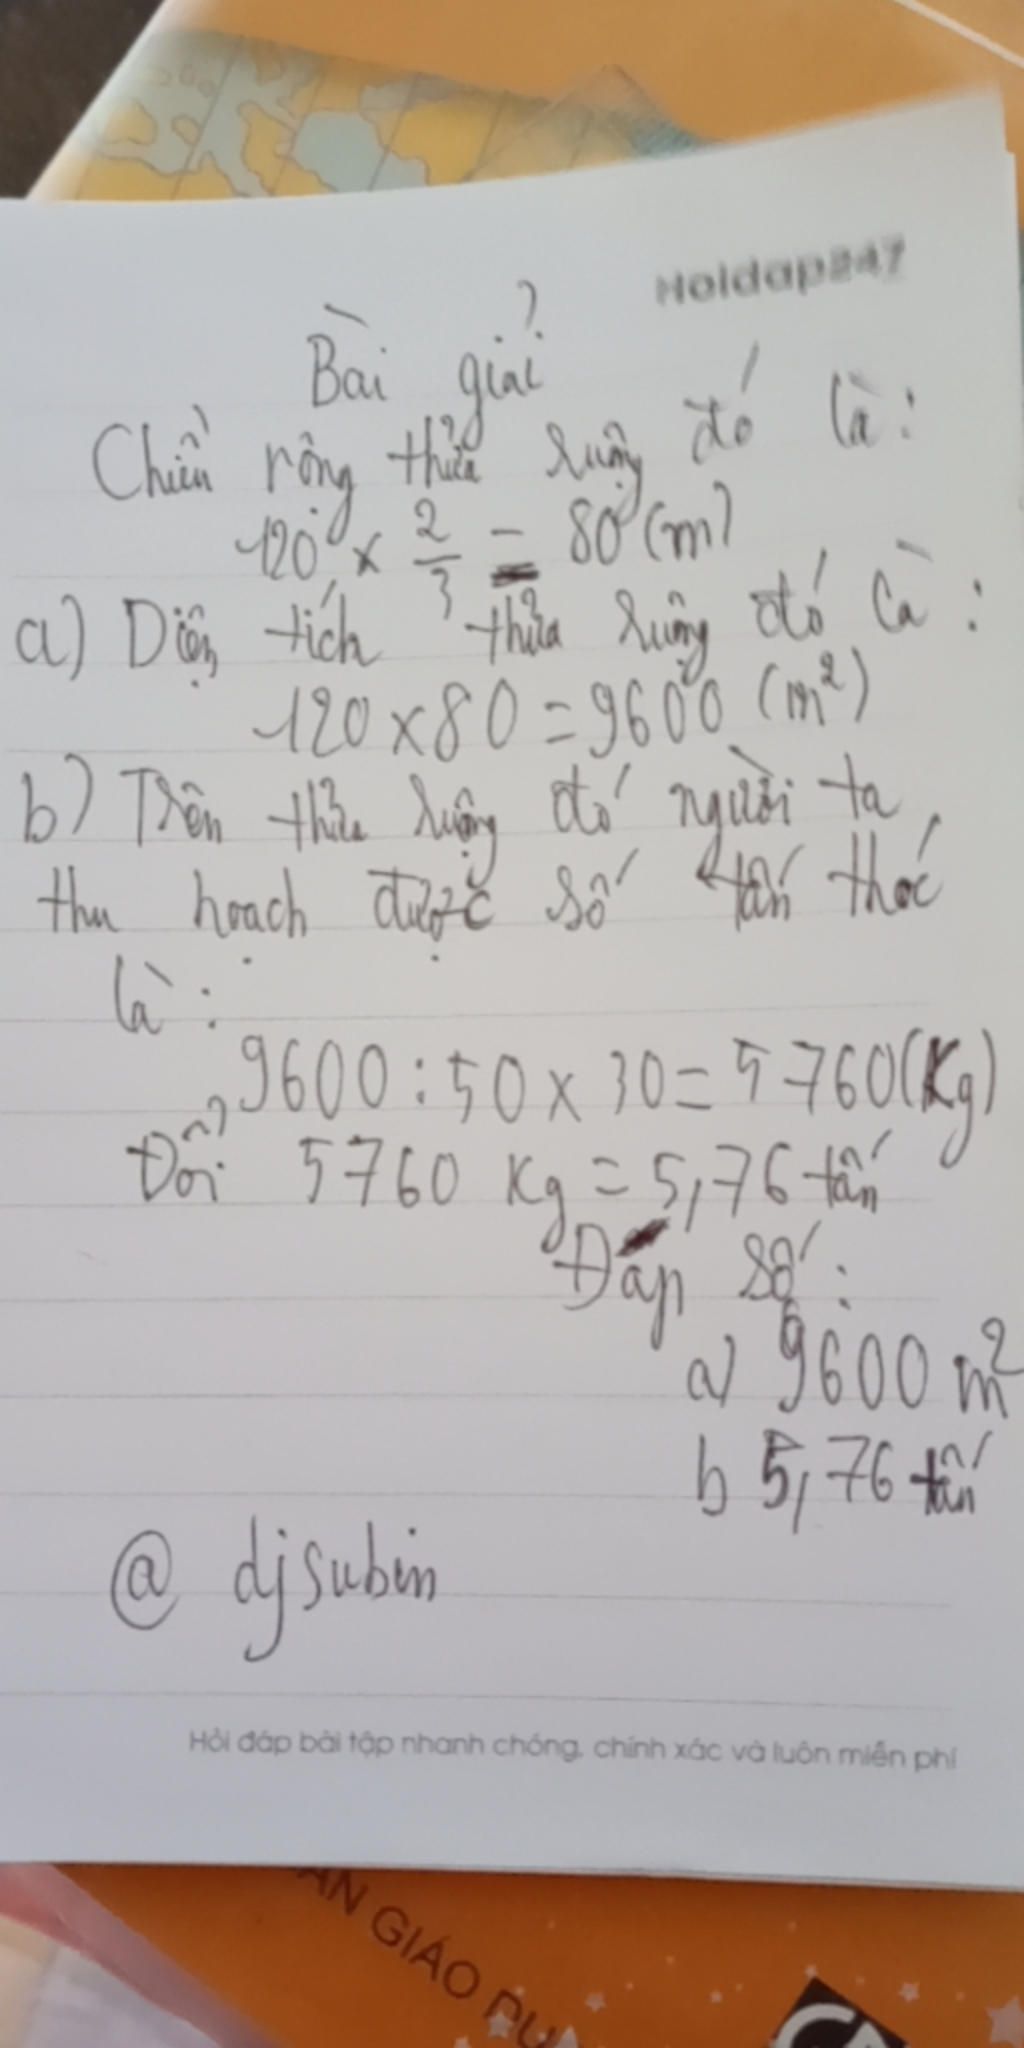 Hoidap247
Bài giải
Chiều rộng thửa ruộng đó là:
120 x 2/3 = 80 (m)
a) Diện tích thửa ruộng đó là:
120 x 80 = 9600 (m²)
b) Trên thửa ruộng đó người ta
thu hoạch được số tấn thóc
là:
9600 : 50 x 30 = 5760 (Kg)
Đổi 5760 Kg = 5,76 tấn
Đáp số:
a) 9600 m²
b 5,76 tấn
@ djsubin
Hỏi đáp bài tập nhanh chóng, chính xác và luôn miễn phí
GIÁO